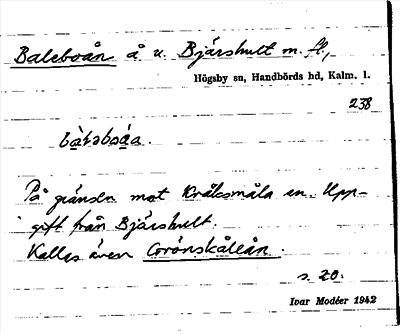 Baleboån å. u. Bjärshult m. fl.,
Högsby sn, Handbörds hd, Kalm. l.
238
På gränsen mot Kråksmåla sn. Upp-
gift från Bjärshult.
Kallas även
s. 20.
Ivar Modéer 1942